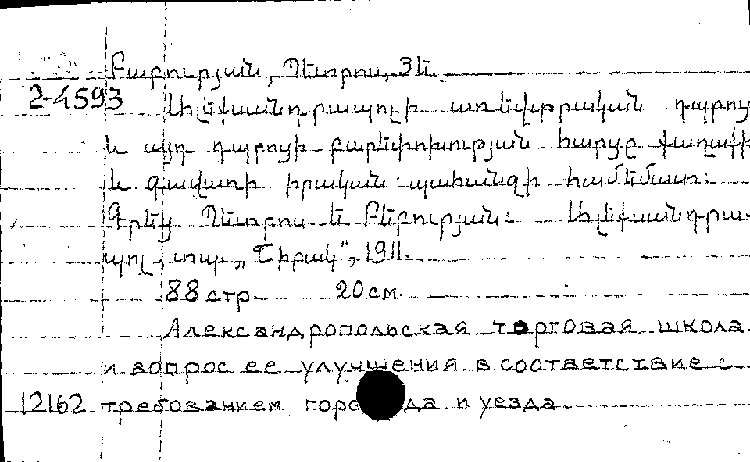 Բաբուրյան, Պետրոս, Յե.
2-4593
Ալեքսանդրապոլի առևտրական դպրոց
և այդ դպրոցի բարեփոխության հարցը քաղաքի
և գավառի իրական պահանջի համեմատ:
Գրեց Պետրոս Ե Բաբուրյան: Ալեքսանդրա-
պոլ, տպ. „Շիրակ“, 1911.
88 стр 20 см.
Александропольская торговая школа
и вопрос ее улучшений в соответствие с
12162 требованием города и уезда.